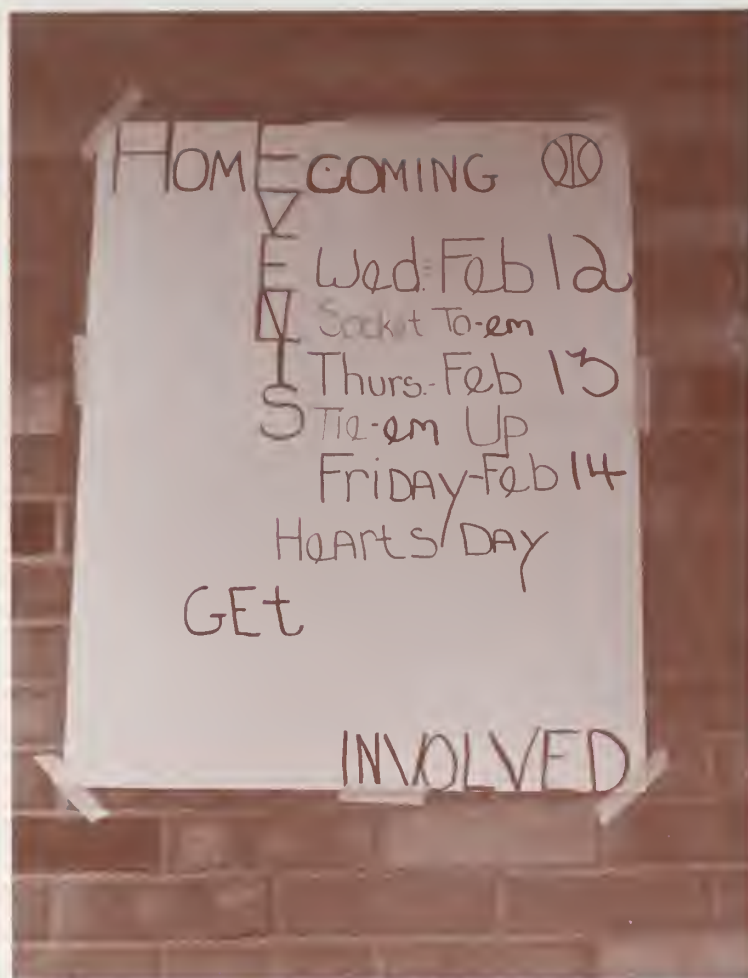 HomECOMING
EVENTS
Wed. Feb 12
Socket To-em
Thurs.-Feb 13
Tie-em Up
FRIDAY-Feb 14
HeArts DAY
GEt
INVOLVED